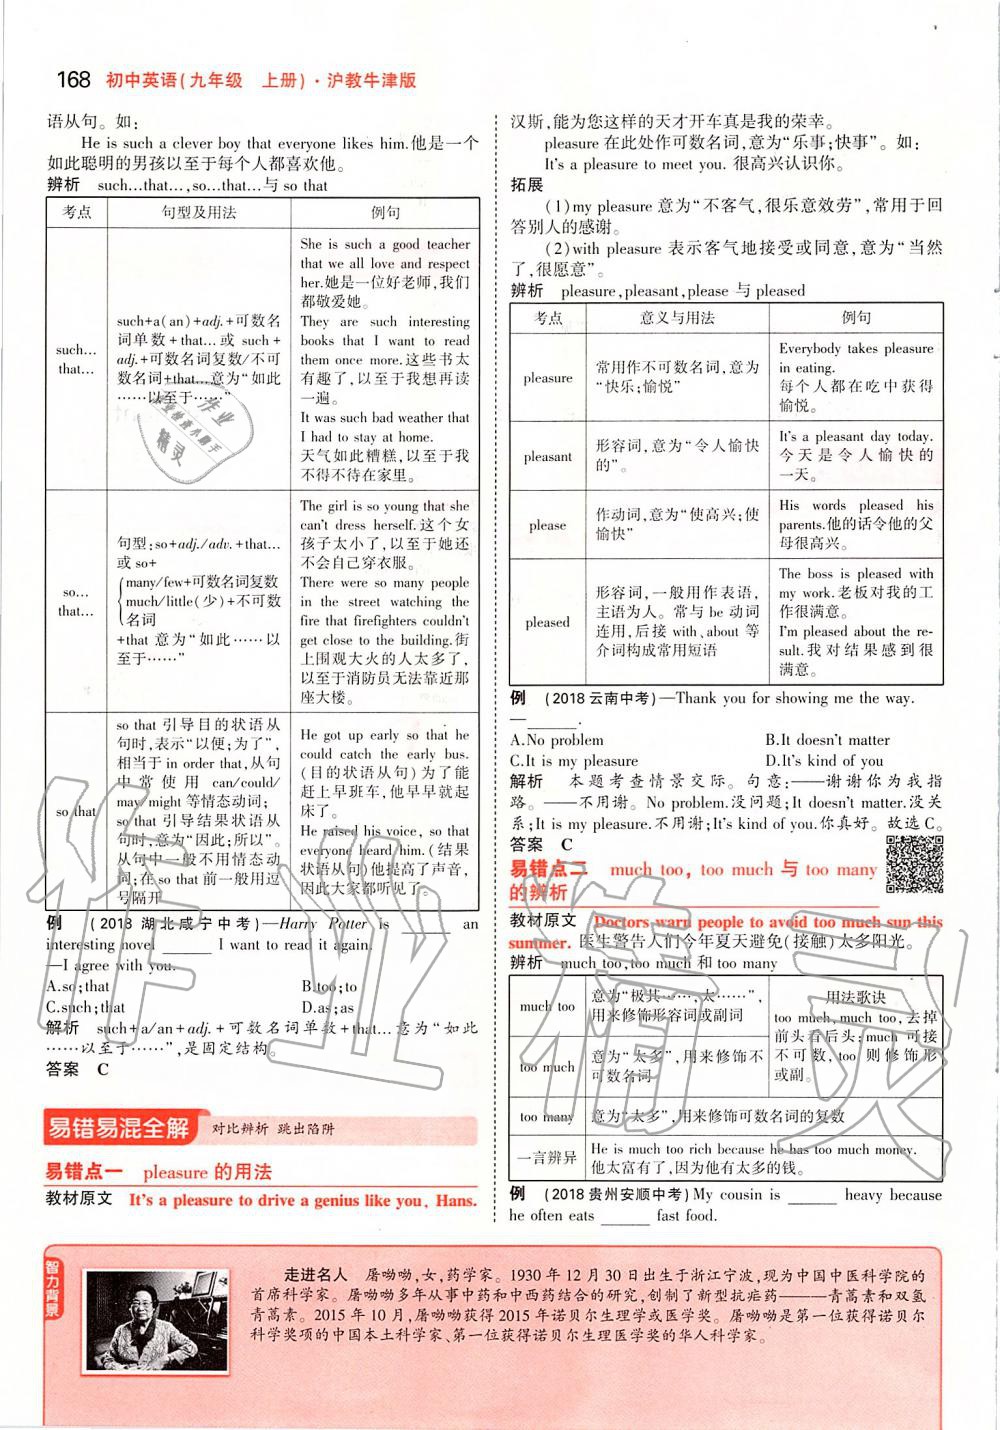 168 初中英语(九年级 上册)·沪教牛津版
语从句。如:
He is such a clever boy that everyone likes him.他是一个
如此聪明的男孩以至于每个人都喜欢他。
辨析 such…that…,so…that…与 so that
考点 句型及用法 例句
such…
that…
such+a(an)+adj.+可数名
词单数+that…或 such+
adj.+可数名词复数/不可
数名词+that…意为“如此
……以至于……”
She is such a good teacher
that we all love and respect
her.她是一位好老师,我们
都敬爱她。
They are such interesting
books that I want to read
them once more.这些书太
有趣了,以至于我想再读
一遍。
It was such bad weather that
I had to stay at home.
天气如此糟糕,以至于我
不得不待在家里。
so…
that…
句型:so+adj./adv.+that…
或 so+
many/few+可数名词复数
much/little(少)+不可数
名词
+that 意为“如此……以
至于……”
The girl is so young that she
can't dress herself.这个女
孩子太小了,以至于她还
不会自己穿衣服。
There were so many people
in the street watching the
fire that firefighters couldn't
get close to the building.街
上围观大火的人太多了,
以至于消防员无法靠近那
座大楼。
so that
so that 引导目的状语从
句时,表示“以便;为了”,
相当于 in order that,从句
中常使用 can/could/
may/might 等情态动词;
so that 引导结果状语从
句时,意为“因此;所以”。
从句中一般不用情态动
词;在 so that 前一般用逗
号隔开
He got up early so that he
could catch the early bus.
(目的状语从句)为了能
赶上早班车,他早早就起
床了。
He raised his voice, so that
everyone heard him.(结果
状语从句)他提高了声音,
因此大家都听见了。
例 (2018 湖北咸宁中考)—Harry Potter is ______ an
interesting novel ______ I want to read it again.
—I agree with you.
A.so;that B.too;to
C.such;that D.as;as
解析 such+a/an+adj.+可数名词单数+that…意为“如此
……以至于……”,是固定结构。
答案 C
易错易混全解 对比辨析 跳出陷阱
易错点一 pleasure 的用法
教材原文 It's a pleasure to drive a genius like you, Hans.
汉斯,能为您这样的天才开车真是我的荣幸。
pleasure 在此处作可数名词,意为“乐事;快事”。如:
It's a pleasure to meet you. 很高兴认识你。
拓展
(1)my pleasure 意为“不客气,很乐意效劳”,常用于回
答别人的感谢。
(2)with pleasure 表示客气地接受或同意,意为“当然
了,很愿意”。
辨析 pleasure,pleasant,please 与 pleased
考点 意义与用法 例句
pleasure
常用作不可数名词,意为
“快乐;愉悦”
Everybody takes pleasure
in eating.
每个人都在吃中获得
愉悦。
pleasant
形容词,意为“令人愉快
的”。
It's a pleasant day today.
今天是令人愉快的
一天。
please
作动词,意为“使高兴;使
愉快”
His words pleased his
parents.他的话令他的父
母很高兴。
pleased
形容词,一般用作表语,
主语为人。常与 be 动词
连用,后接 with、about 等
介词构成常用短语
The boss is pleased with
my work.老板对我的工
作很满意。
I'm pleased about the re-
sult.我对结果感到很
满意。
例 (2018 云南中考)—Thank you for showing me the way.
—______.
A.No problem B.It doesn't matter
C.It is my pleasure D.It's kind of you
解析 本题考查情景交际。句意:——谢谢你为我指
路。——不用谢。No problem.没问题;It doesn't matter.没关
系;It is my pleasure.不用谢;It's kind of you.你真好。故选 C。
答案 C
易错点二 much too, too much 与 too many
的辨析
教材原文 Doctors warn people to avoid too much sun this
summer. 医生警告人们今年夏天避免(接触)太多阳光。
辨析 much too,too much 和 too many
much too
意为“极其……,太……”,
用来修饰形容词或副词
用法歌诀
too much,much too,去掉
前头看后头;much 可接
不可数,too 则修饰形
或副。
too much
意为“太多”,用来修饰不
可数名词
too many 意为“太多”,用来修饰可数名词的复数
一言辨异
He is much too rich because he has too much money.
他太富有了,因为他有太多的钱。
例 (2018 贵州安顺中考)My cousin is ______ heavy because
he often eats ______ fast food.
智力背景
走进名人 屠呦呦,女,药学家。1930 年 12 月 30 日出生于浙江宁波,现为中国中医科学院的
首席科学家。屠呦呦多年从事中药和中西药结合的研究,创制了新型抗疟药———青蒿素和双氢
青蒿素。2015 年 10 月,屠呦呦获得 2015 年诺贝尔生理学或医学奖。屠呦呦是第一位获得诺贝尔
科学奖项的中国本土科学家、第一位获得诺贝尔生理医学奖的华人科学家。
作业精灵